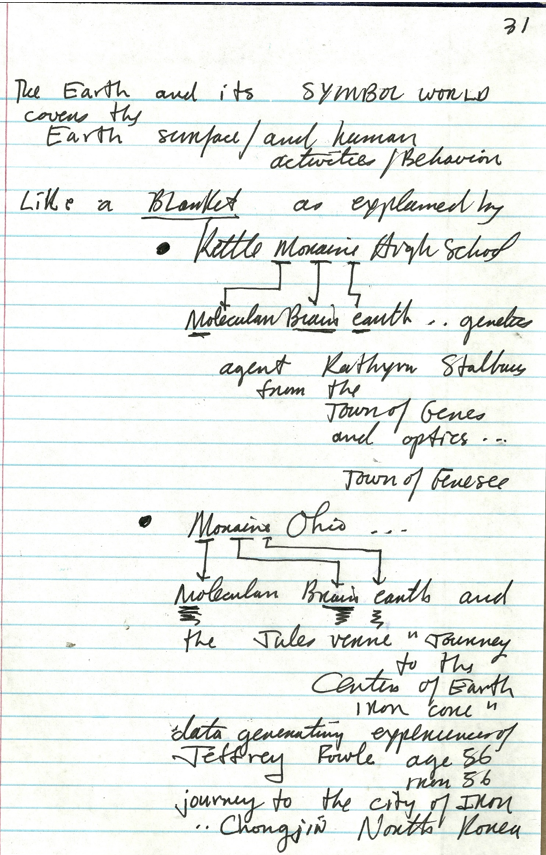 31
The Earth and its SYMBOL WORLD
covers the
Earth surface / and human
activities / Behavior
Like a Blanket as explained by
• Kettle Moraine High School
Molecular Brain earth .. genetics
agent Kathryn Stalbus
from the
Town of Genes
and optics ...
Town of Genesee
• Moraine Ohio ...
Molecular Brain earth and
the Jules verne " Journey
to the
Center of Earth
iron core "
data generating experiences of
Jeffrey Fowle age 56
iron 56
journey to the city of Iron
.. Chongjin North Korea